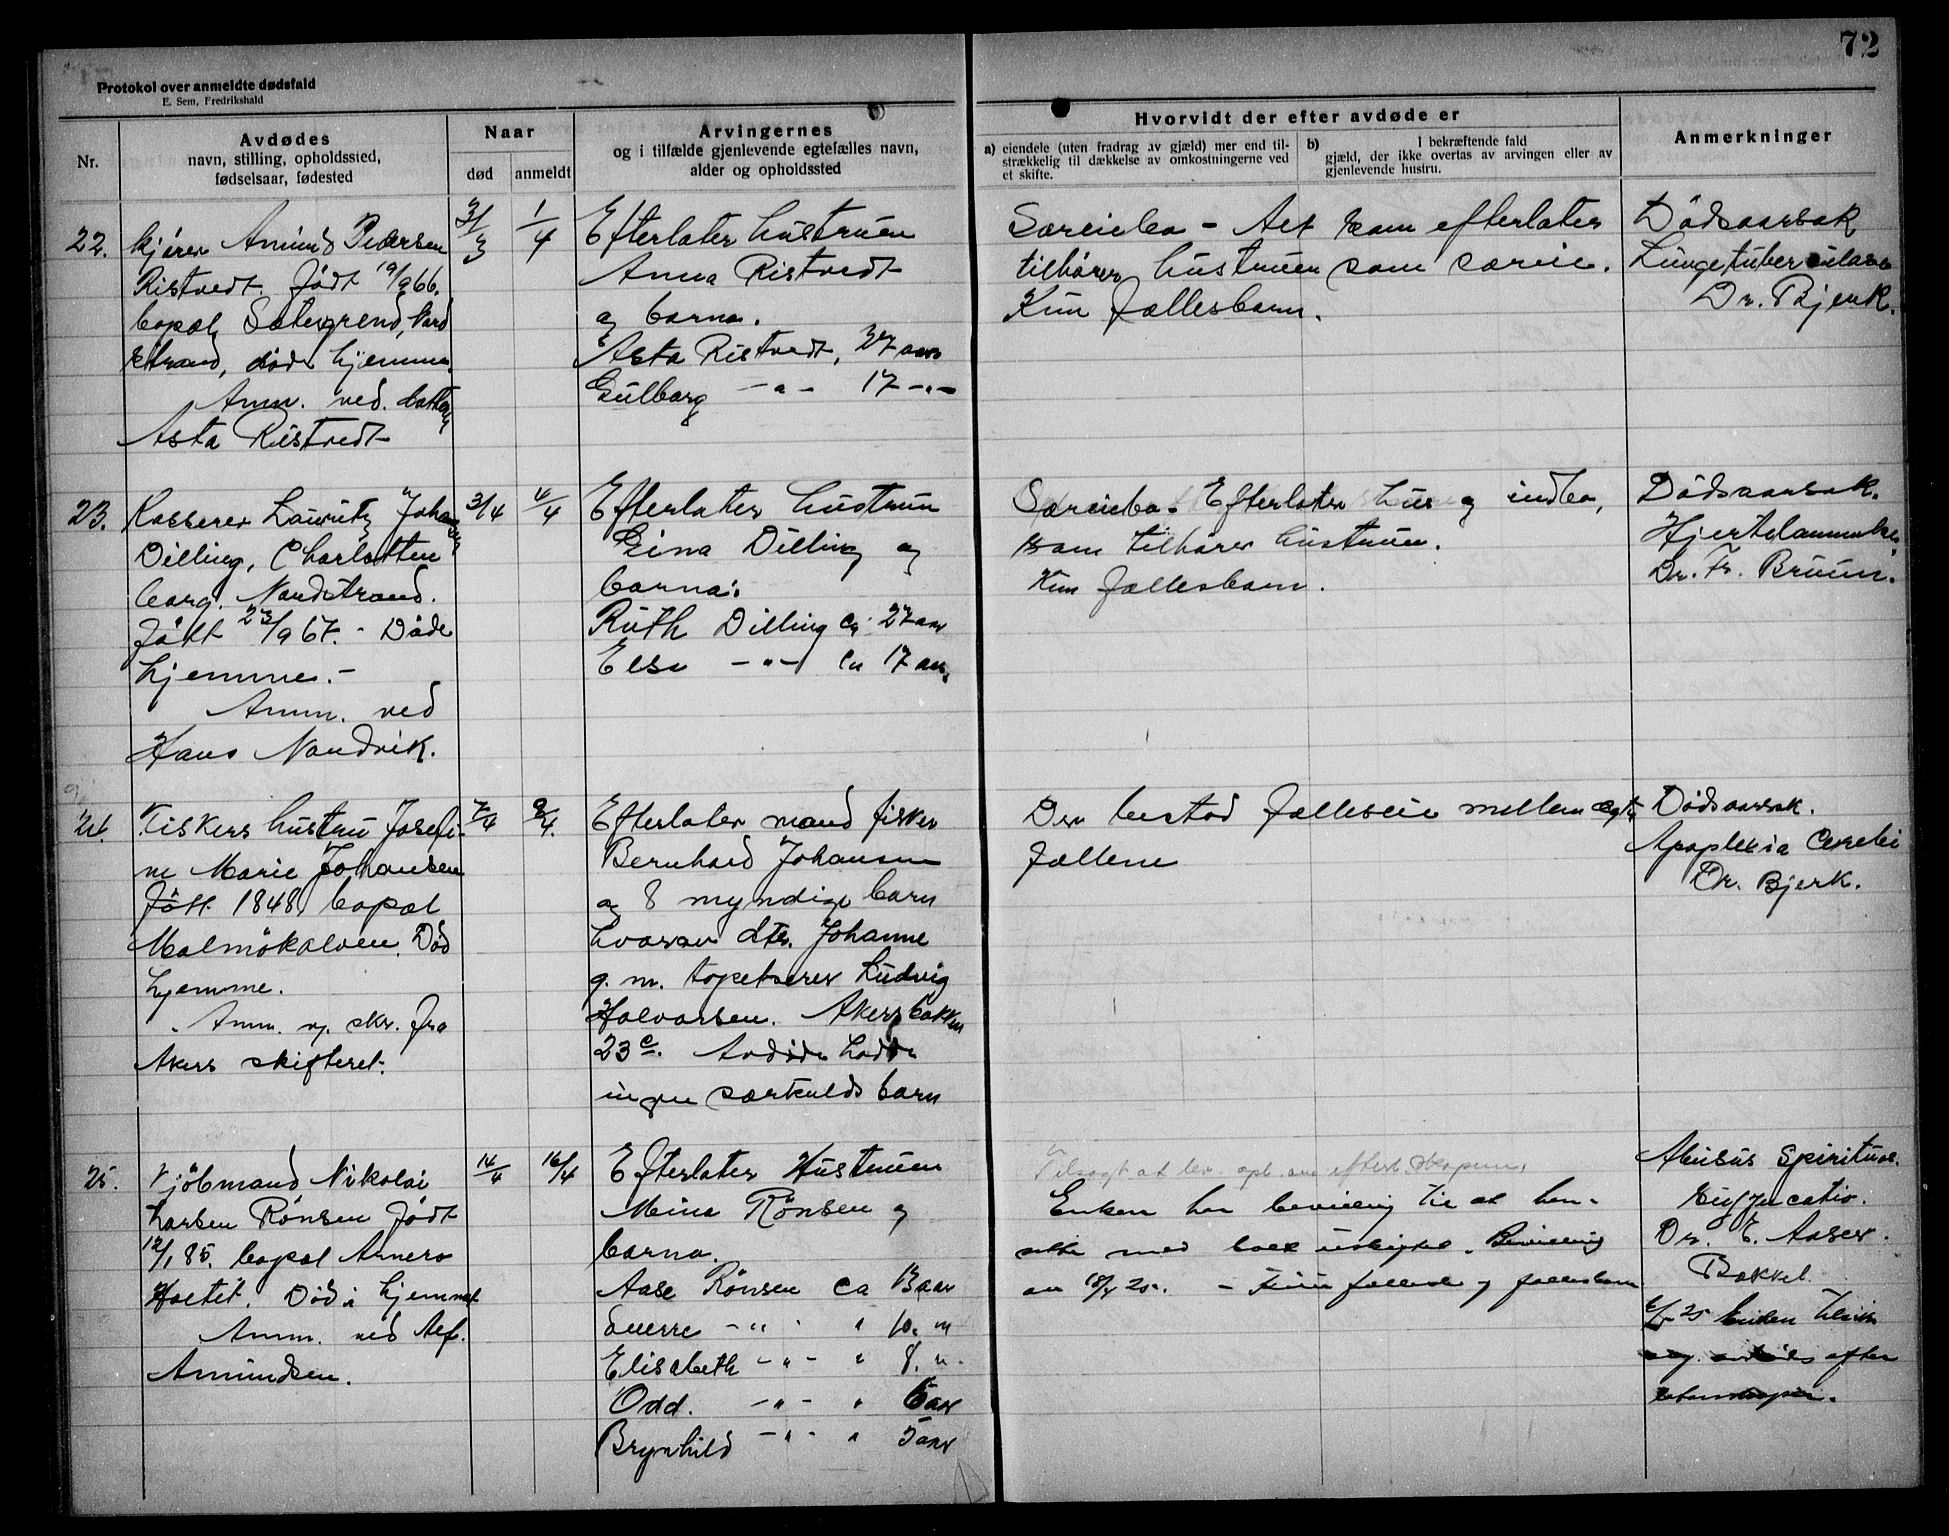 72
Protokol over anmeldte dødsfald
E. Sem, Fredrikshald
Nr.
Avdødes
navn, stilling, opholdssted,
fødselsaar, fødested
Naar
død
anmeldt
Arvingernes
og i tilfælde gjenlevende egtefælles navn,
alder og opholdssted
Hvorvidt der efter avdøde er
a) eiendele (uten fradrag av gjæld) mer end til-
strækkelig til dækkelse av omkostningerne ved
et skifte.
b) I bekræftende fald
gjæld, der ikke overtas av arvingen eller av
gjenlevende hustru.
Anmerkninger
22.
kjører Amund Pedersen
Ristvedt. Født 19/9 66.
bopæl Sætergrend, Nord
strand, døde hjemme.
Anm. ved datter
Asta Ristvedt
31/3
1/4
Efterlater hustruen
Anna Ristvedt
og barna.
Asta Ristvedt, 27 aar
Gulborg -"- 17 -"-
Særeiebo - Alt som efterlates
tilhører hustruen som særeie.
Kun fællesbarn.
Dødsaarsak
Lungetuberculose
Dr. Bjerk.
23.
Kasserer Lauritz Johansen
Dilling, Charlotten
borg. Nordstrand.
Født 23/9 67. - Døde
hjemme. -
Anm. ved
Hans Nordvik.
3/4
4/4
Efterlater hustrun
Gina Dilling og
barna:
Ruth Dilling ca 27 aar
Else -"- ca 17 aar.
Særeiebo. Efterlater hus og indbo,
som tilhører hustruen.
Kun fællesbarn.
Dødsaarsak.
Hjertelammelse,
Dr. Fr. Bruun.
24.
Fiskers hustru Josefi-
ne Marie Johansen
Født 1848, bopæl
Malmøkalven. Død
hjemme.
Anm. v. skr. fra
Akers skifteret.
7/4
8/4.
Efterlater mand fisker
Bernhard Johansen
og 8 myndige barn
hvorav dtr. Johanne
g. m. tapetserer Ludvig
Halvorsen. Akersbakken
23 c. Avdøde hadde
ingen særkulds barn
Der bestod fælleseie mellem egte
fællene
Dødsaarsak.
Apoplexia Cerebri
Dr. Bjerk.
25.
Kjöbmand Nikolai
Larsen Rönsen Født
12/1 85. bopæl Arnero
Død i hjemmet
Anm. ved Alf.
Amundsen.
14/4
16/4
Efterlater Hustruen
Mina Rönsen og
barna.
Aase Rönsen ca 13 aar
Sverre -"- " 10. "
Elisabeth -"- " 8. "
Odd. -"- " 6 aar
Brynhild -"- " 5 aar
Tilsagt at lev. opl. om efterl.
Enken har bevilling til at hen-
sitte med boet uskiftet. Bevilling
av 18/4 25. - Kun fælleseie og fællesbarn
Abusus Spirituos.
Suffocatio.
Dr. E. Aaser.
Bakkel.
25 enken
efter